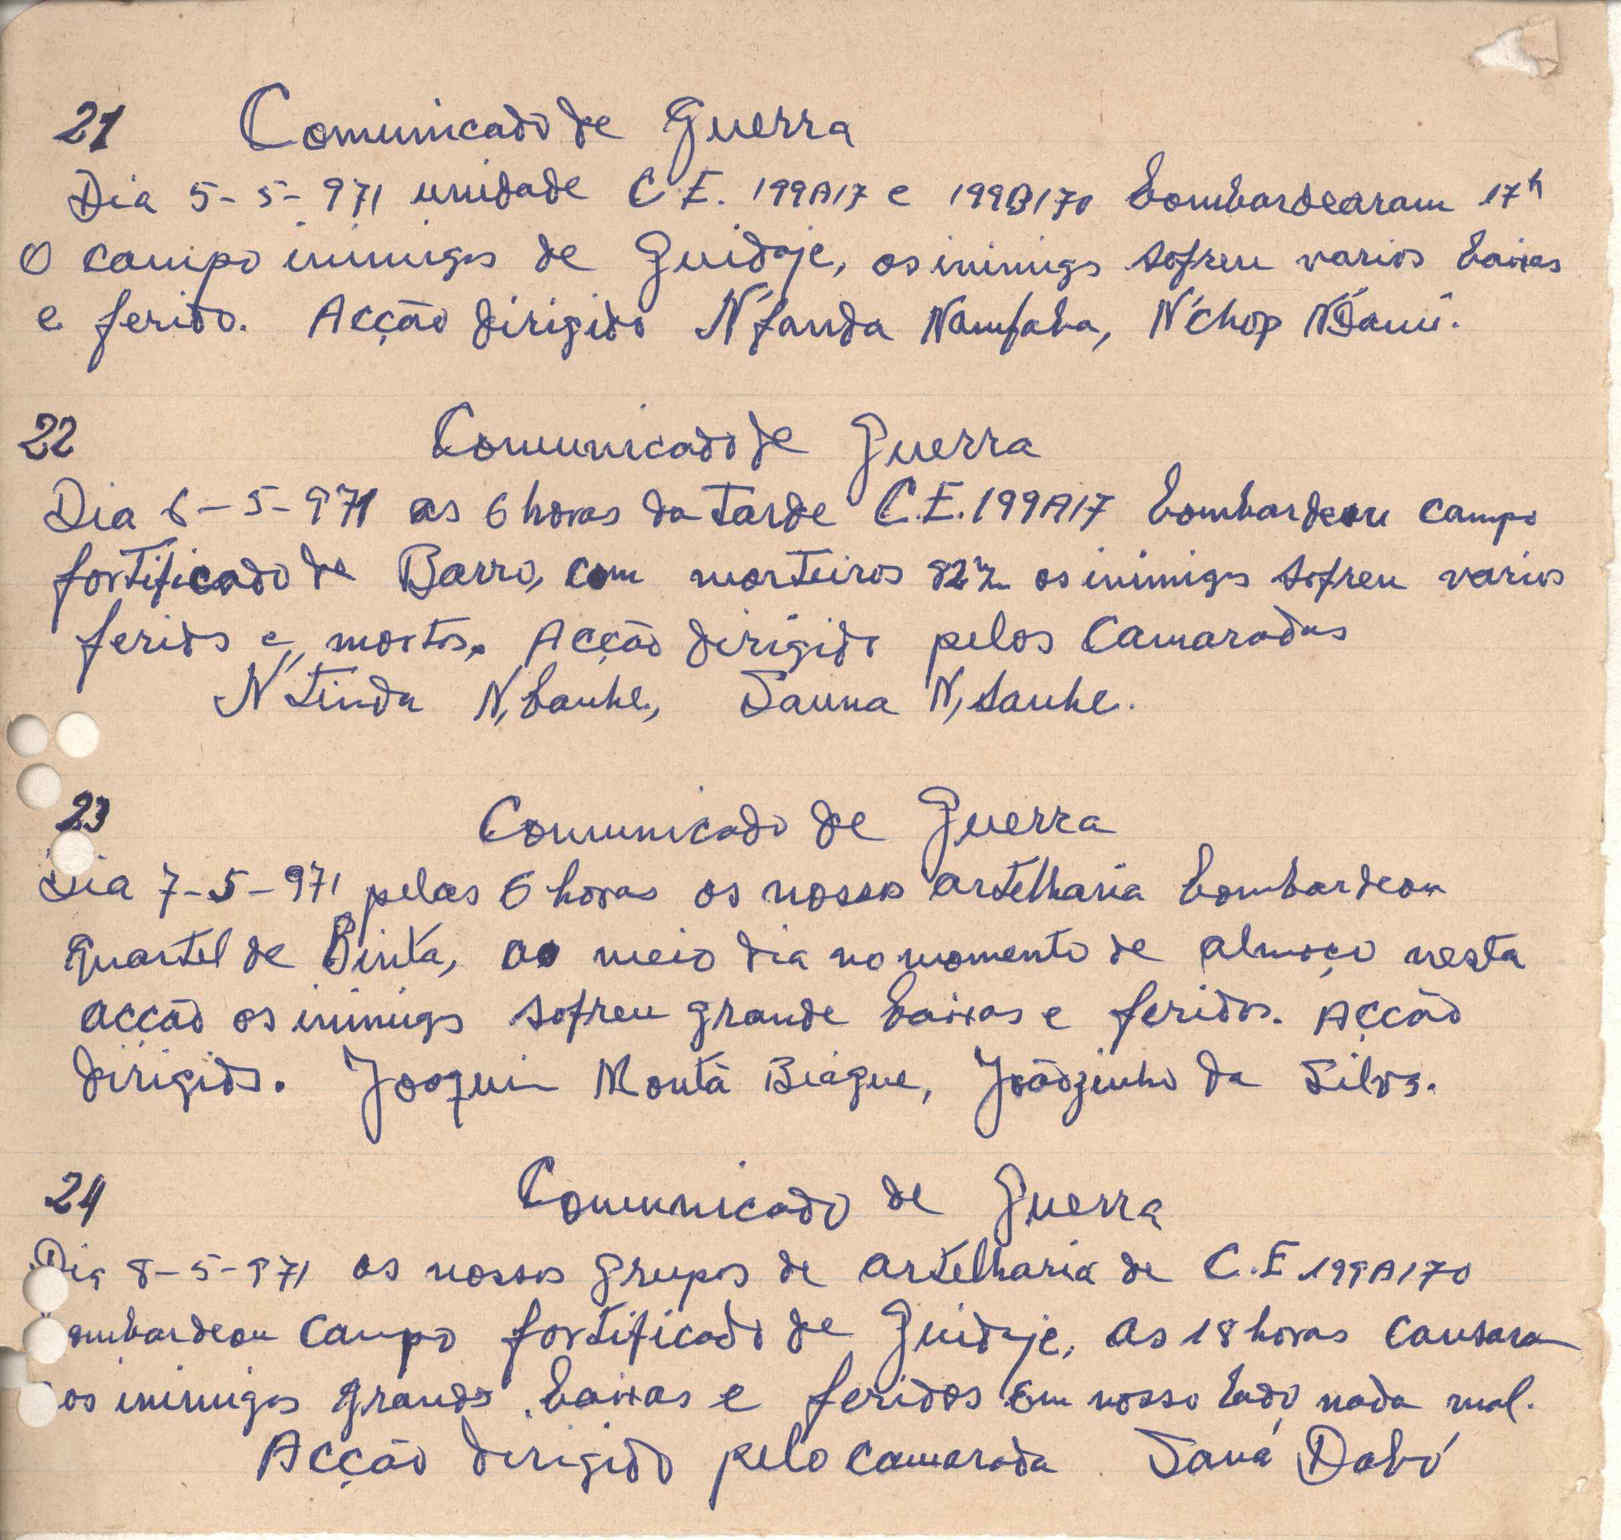 21 Comunicado de Guerra
Dia 5-5-971 unidade C.E. 199A17 e 199B170 bombardearam 17h
O campo inimigos de Guidaje, os inimigs sofreu varios baixas
e ferido. Acção dirigido N'fanda Namfaba, N'chop
22 Comunicado de Guerra
Dia 6-5-971 as 6 horas da Tarde C.E. 199A17 bombardeou campo
fortificado de Barro, com morteiros 82 os inimigos sofreu varios
ferids e mortos. Acção dirigido pelos Camaradas
N'Tinda
23 Comunicado de Guerra
Dia 7-5-971 pelas 6 horas os nossos artelharia bombardeou
quartel de Binta, ao meio dia no momento de almoço nesta
acção os inimigs sofreu grande baixas e feridos. Acção
dirigido. Joaquin Montã Biague, Joãozinho da Silva.
24 Comunicado de Guerra
Dia 8-5-971 os nossos grupos de artelharia de C.E 199A170
ombardeou Campo fortificado de Guidaje, as 18 horas causaram
os inimigos grands baixas e feridos Em nosso lado nada mal.
Acção dirigido pelo camarada Saná Dabó